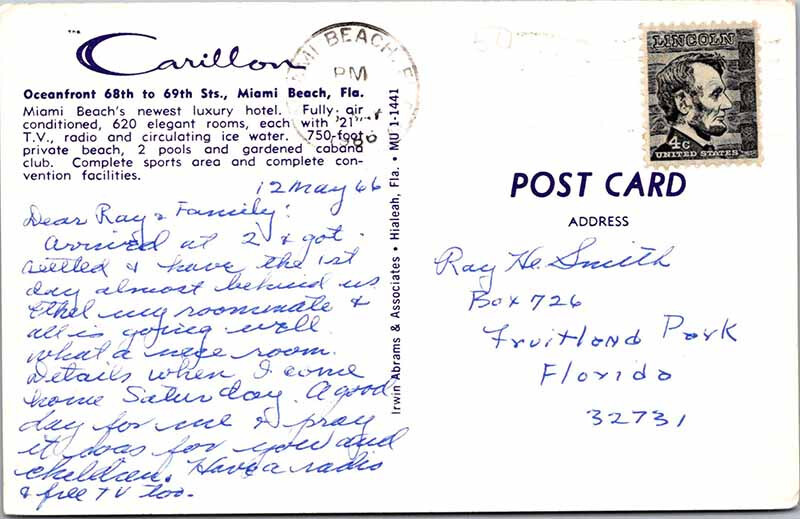 Carillon
Oceanfront 68th to 69th Sts., Miami Beach, Fla.
Miami Beach's newest luxury hotel. Fully air
conditioned, 620 elegant rooms, each with "21"
T.V., radio and circulating ice water. 750-foot
private beach, 2 pools and gardened cabana
club. Complete sports area and complete con-
vention facilities.
12 May 66
Dear Ray & Family:
Arrived at 2 & got
settled & have the 1st
day almost behind us
Ethel my roommate &
all is going well.
what a nice room.
Details when I come
home Saturday. A good
day for me & pray
it was for you and
children. Have a radio
& free TV too.
Irwin Abrams & Associates • Hialeah, Fla. • MU 1-1441
MIAMI BEACH, F
PM
LINCOLN
4c
UNITED STATES
POST CARD
ADDRESS
Ray H. Smith
Box 726
Fruitland Park
Florida
32731